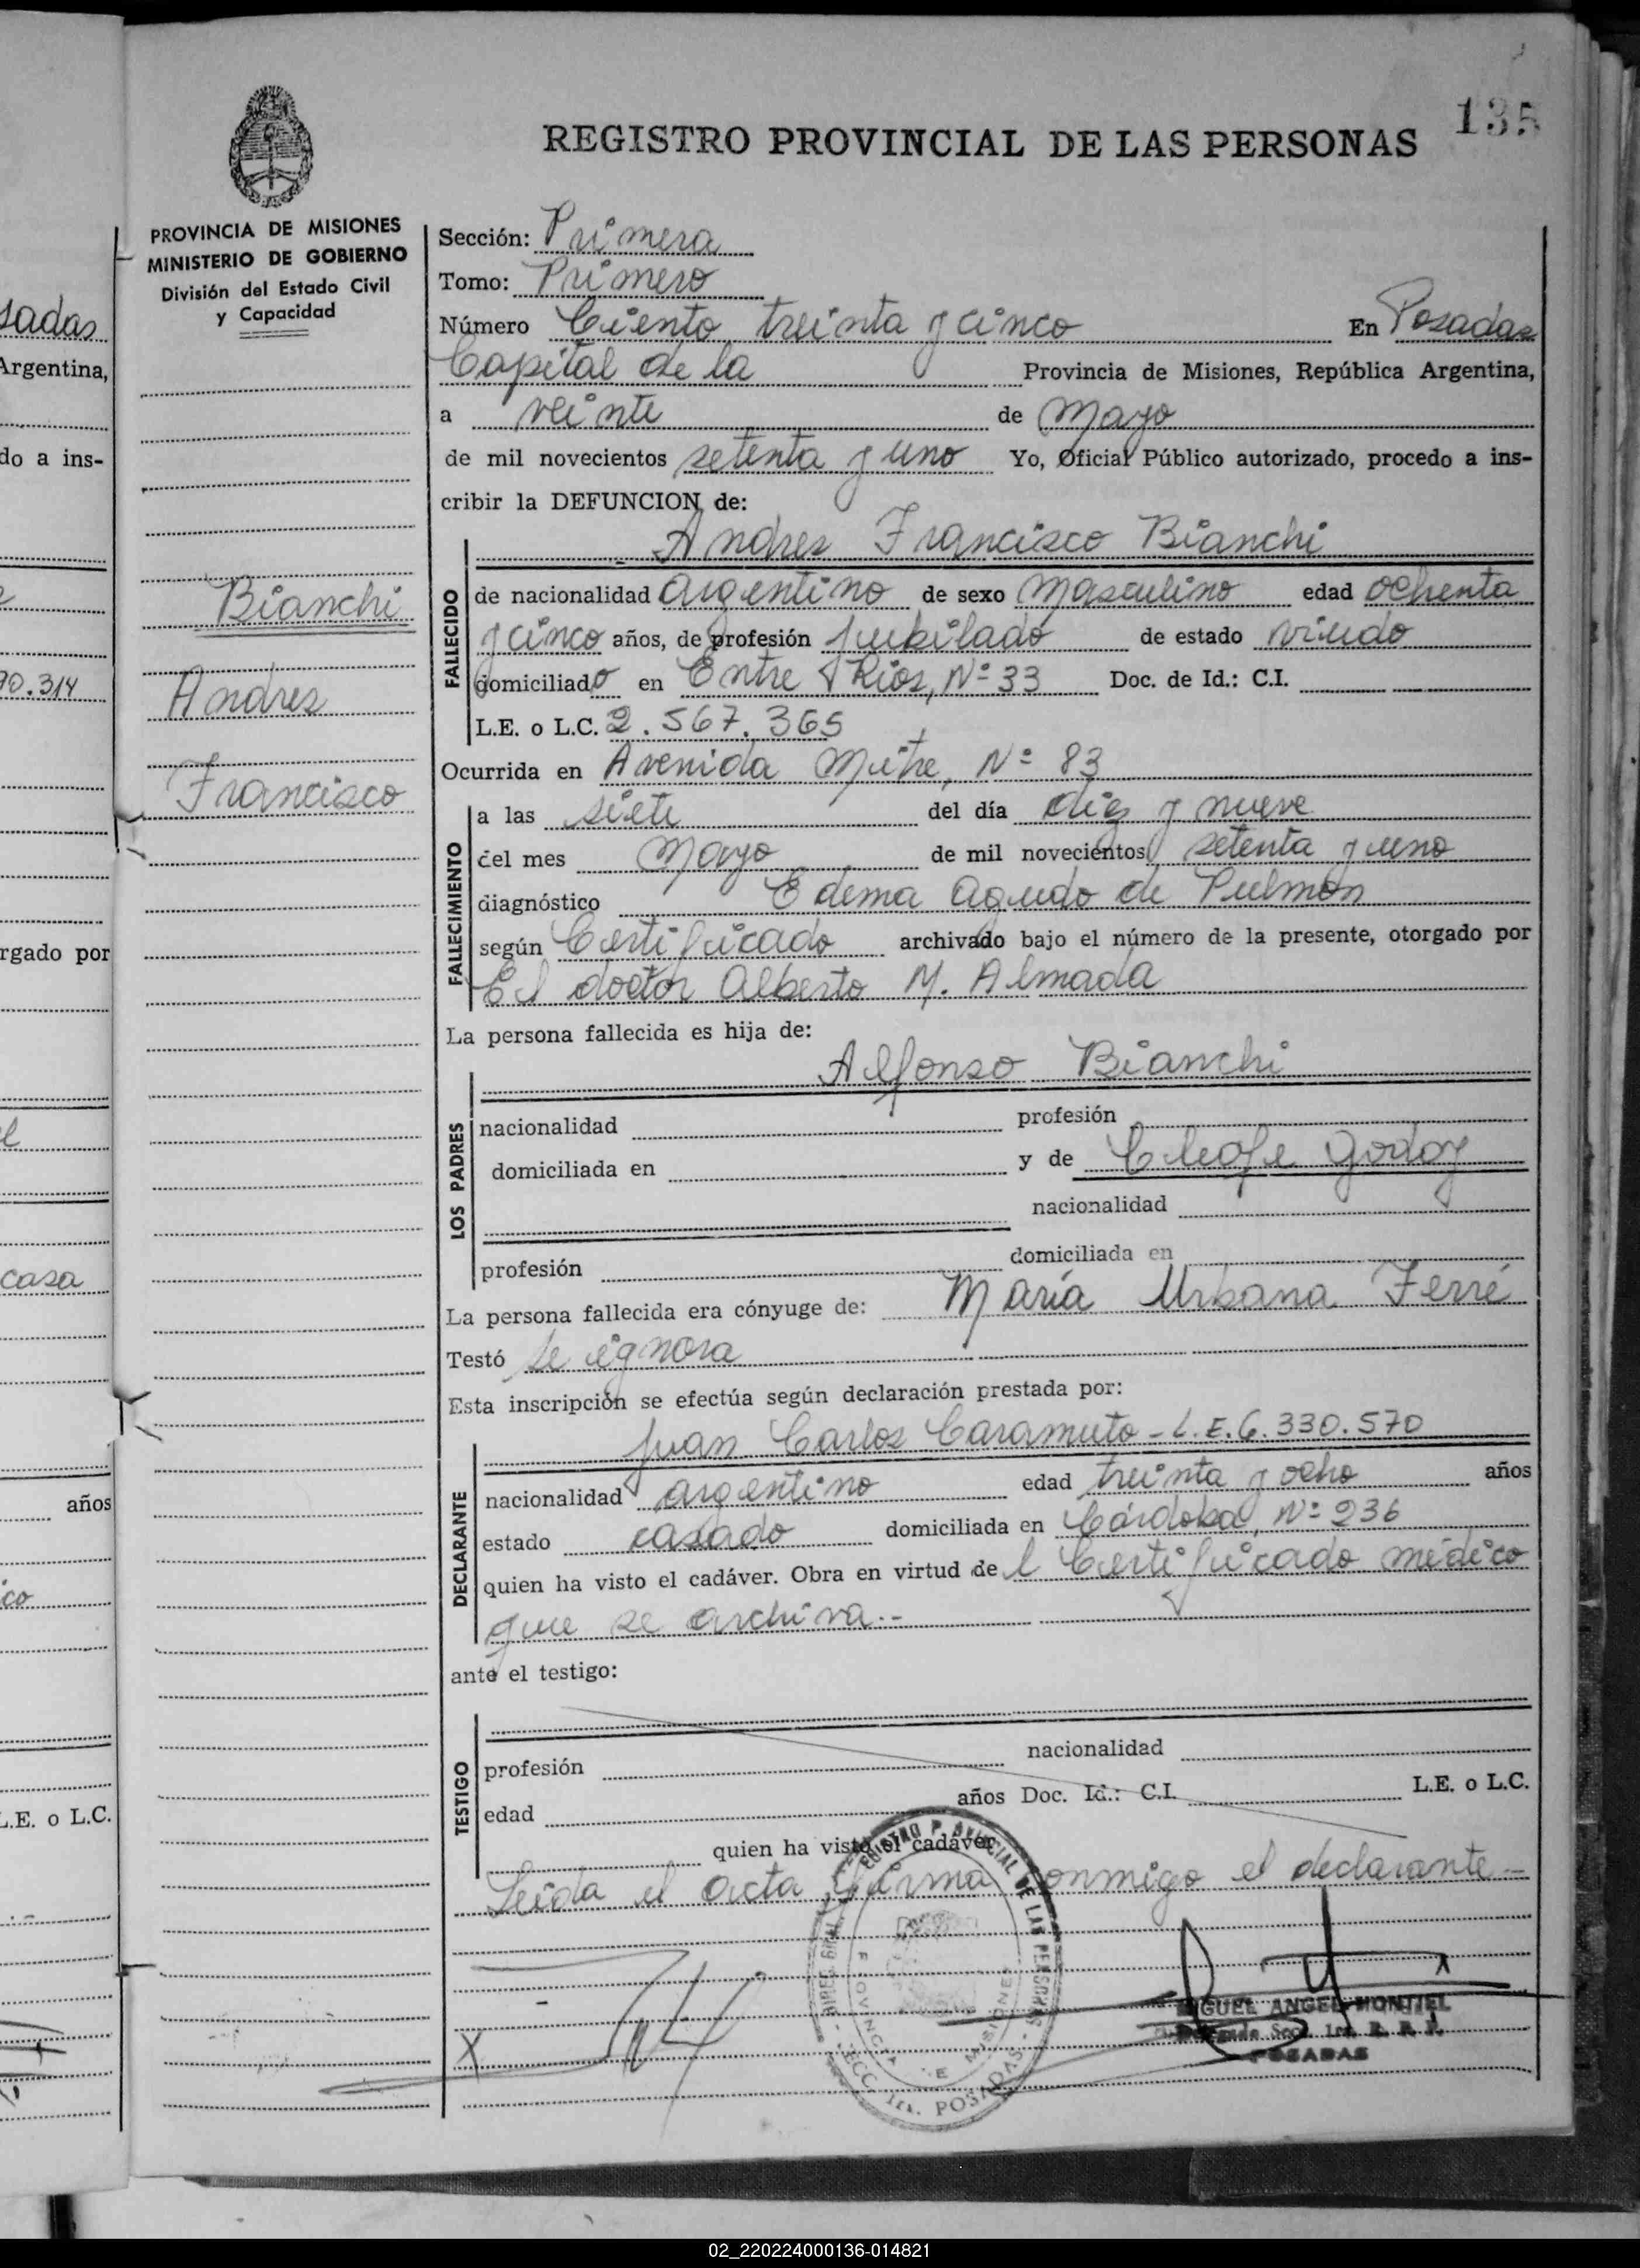 135
REGISTRO PROVINCIAL DE LAS PERSONAS
PROVINCIA DE MISIONES
MINISTERIO DE GOBIERNO
División del Estado Civil
y Capacidad
Bianchi
Andres
Francisco
Sección: Primera
Tomo: Primero
Número Ciento treinta y cinco En Posadas
Capital de la Provincia de Misiones, República Argentina,
a veinte de Mayo
de mil novecientos setenta y uno Yo, Oficial Público autorizado, procedo a ins-
cribir la DEFUNCION de:
Andres Francisco Bianchi
FALLECIDO
de nacionalidad argentino de sexo Masculino edad ochenta
y cinco años, de profesión Jubilado de estado viudo
domiciliado en Entre Rios, Nº 33 Doc. de Id.: C.I.
L.E. o L.C. 2.567.365
Ocurrida en Avenida Mitre, Nº 83
FALLECIMIENTO
a las siete del día diez y nueve
del mes Mayo de mil novecientos setenta y uno
diagnóstico Edema agudo de Pulmón
según Certificado archivado bajo el número de la presente, otorgado por
El doctor Alberto M. Almada
La persona fallecida es hija de:
LOS PADRES
Alfonso Bianchi
nacionalidad profesión
domiciliada en y de Cleofe Godoy
nacionalidad
profesión domiciliada en
La persona fallecida era cónyuge de: María Urbana Ferré
Testó se ignora
Esta inscripción se efectúa según declaración prestada por:
DECLARANTE
Juan Carlos Caramuto - L.E. 6.330.570
nacionalidad argentino edad treinta y ocho años
estado casado domiciliada en Córdoba, Nº 236
quien ha visto el cadáver. Obra en virtud del Certificado médico
que se archiva.-
ante el testigo:
TESTIGO
profesión nacionalidad
edad años Doc. Id.: C.I. L.E. o L.C.
quien ha visto el cadáver
Leida el acta, firma conmigo el declarante.-
X
MIGUEL ANGEL MONTIEL
POSADAS
sadas
Argentina,
do a ins-
90.314
rgado por
casa
años
ico
L.E. o L.C.
02_220224000136-014821